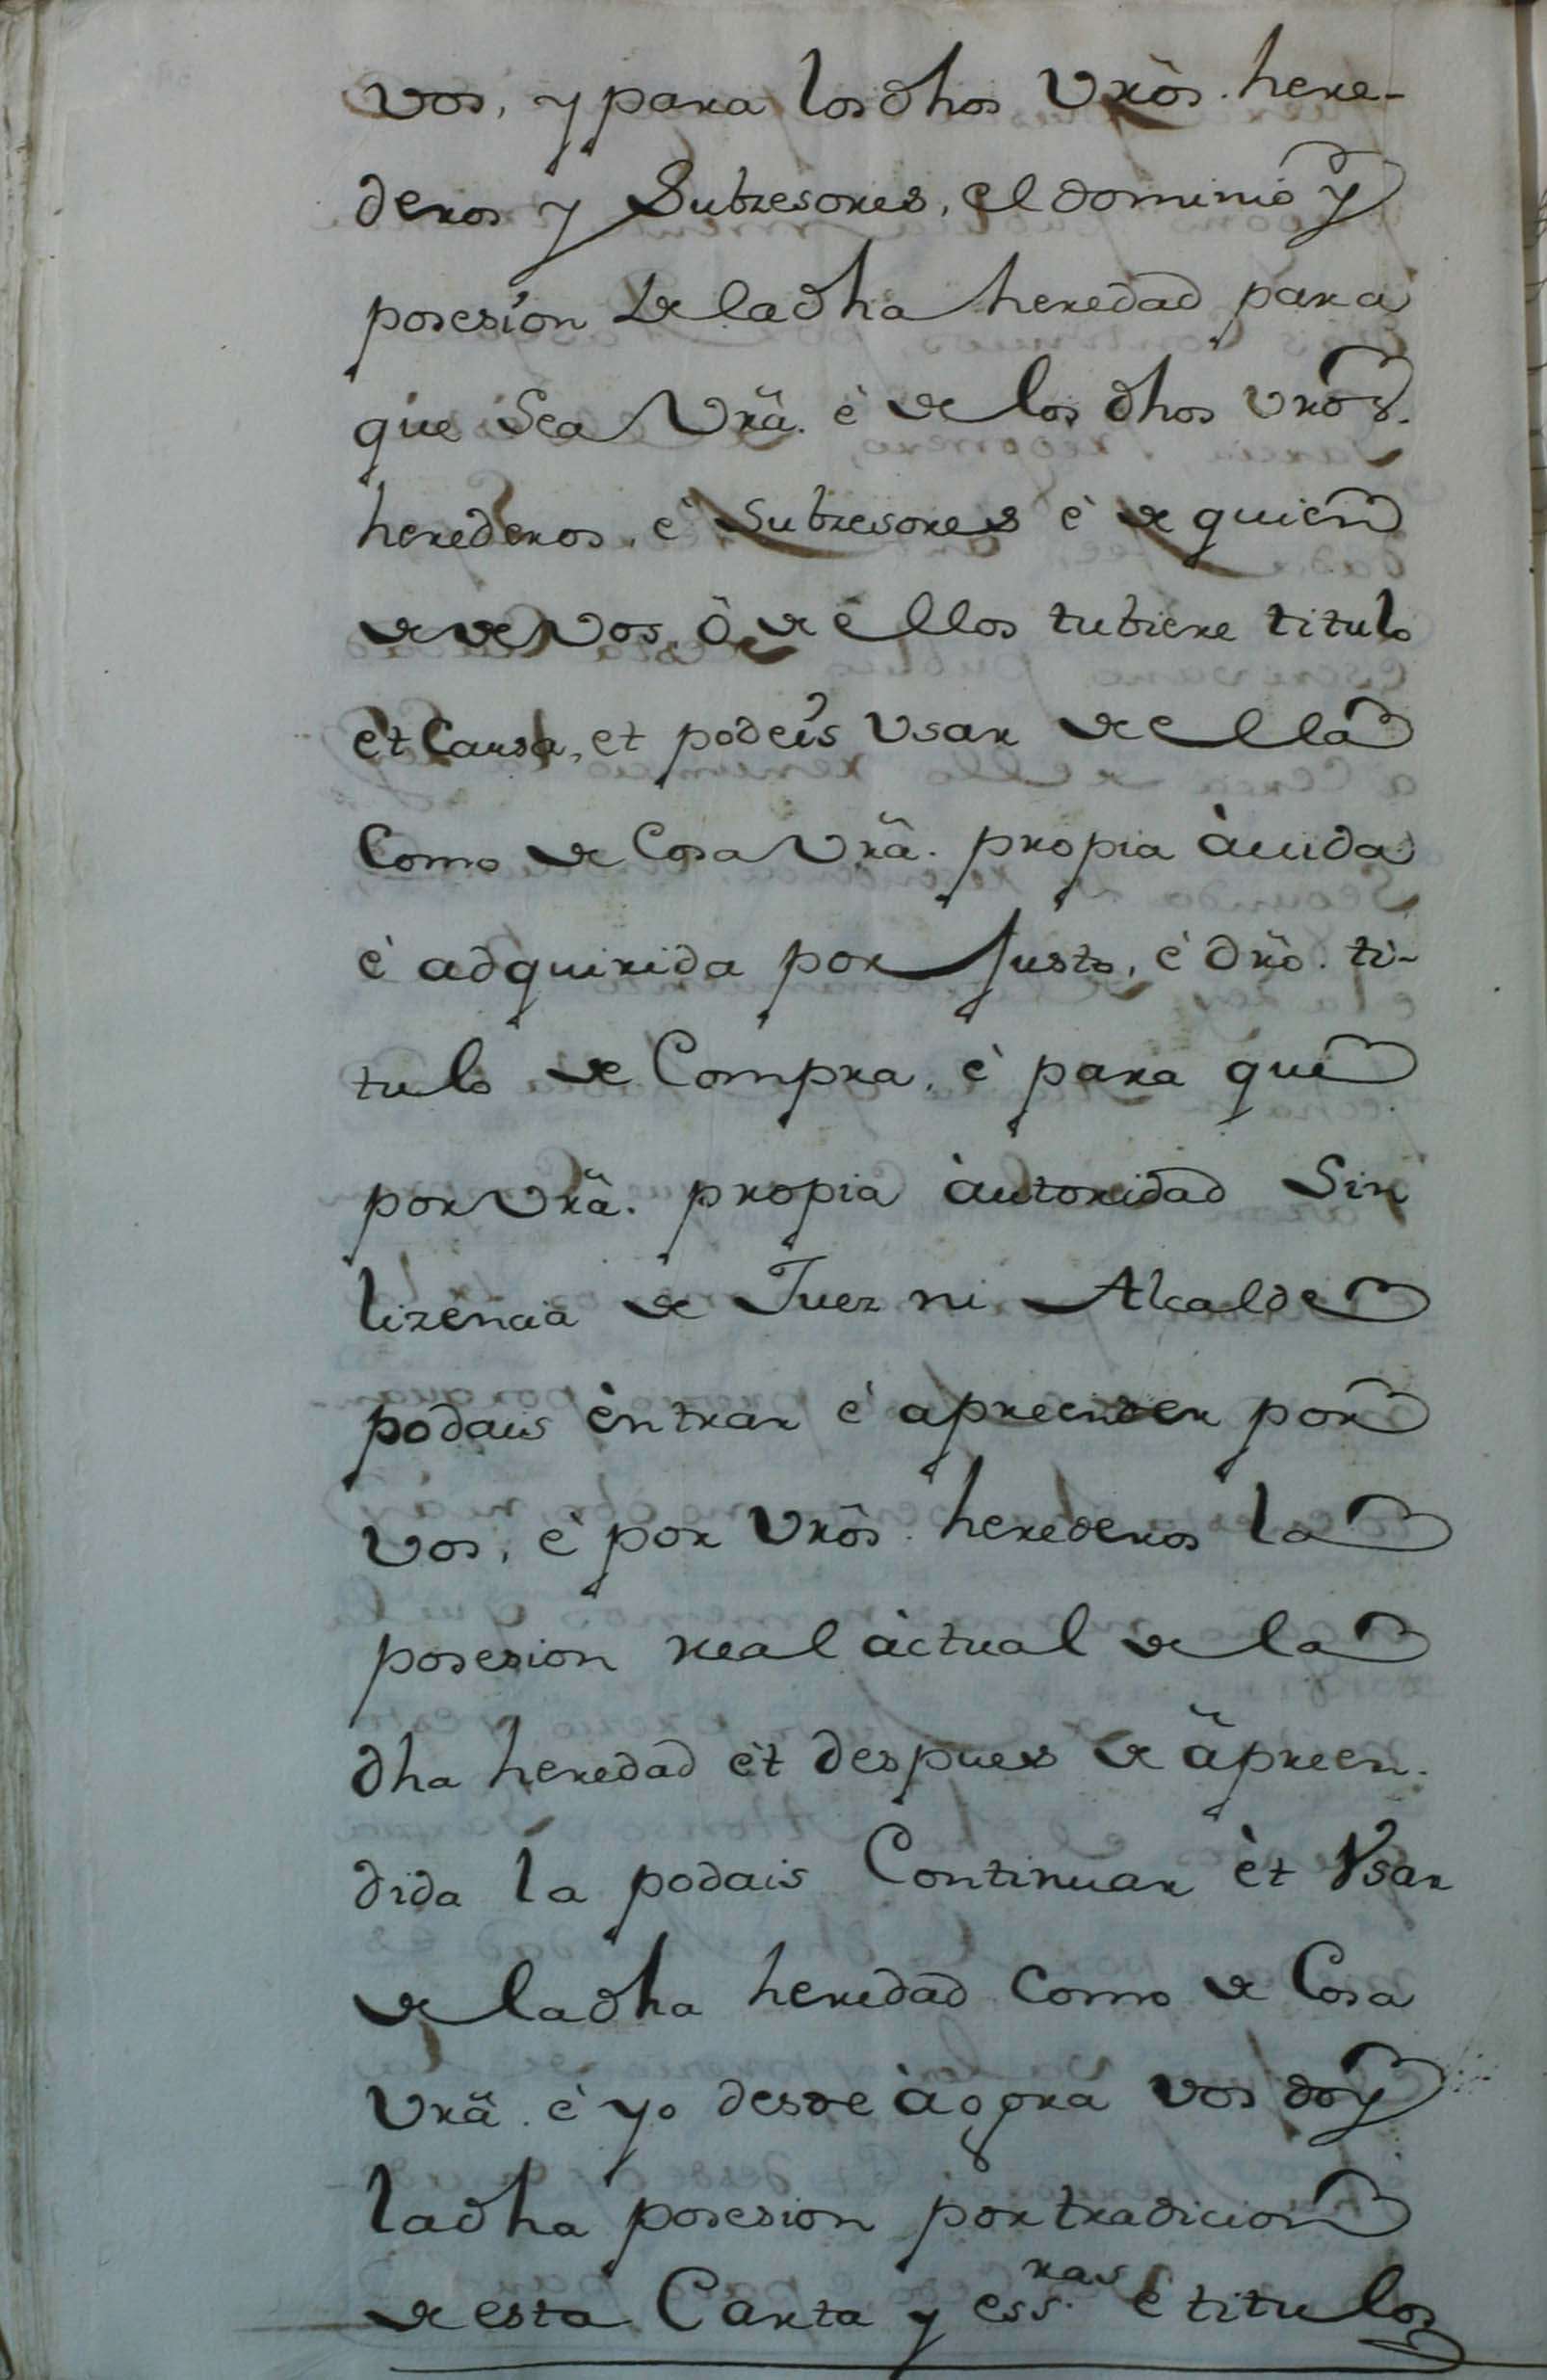 vos, y para los dhos Vrõs. here-
deros y Subzesores, el dominio y
posesion de la dha heredad para
que Sea Vrã. è de los dhos vrõs.
herederos, è Subzesores è de quien
de de vos, ò de èllos tubiere titulo
et Causa, et podeis Vsar de ella
Como de Cosa Vrã. propia àuida
è adquirida por Justo, è drõ. ti-
tulo de Compra, è para que
por Vrã. propia àutoridad Sin
lizencia de Juez ni Alcalde
podais èntrar è apreender por
Vos, è por Vrõs. herederos la
posesion real àctual de la
dha heredad èt despues de äpreen-
dida la podais Continuar èt Vsar
de la dha heredad Como de Cosa
Vrã. è yo desde àgora vos doy
la dha posesion por tradicion
de esta Carta y ess.ras è titulos